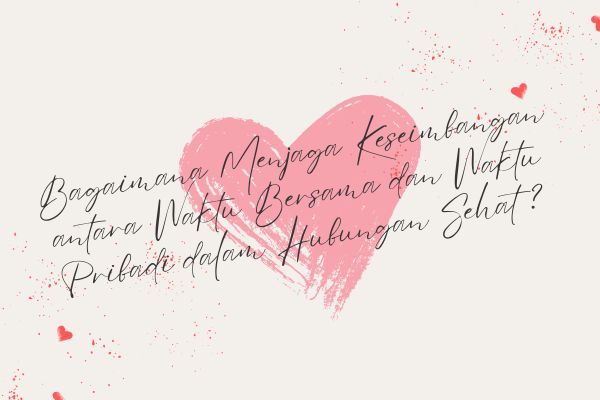 Bagaimana Menjaga Keseimbangan
antara Waktu Bersama dan Waktu
Pribadi dalam Hubungan Sehat?